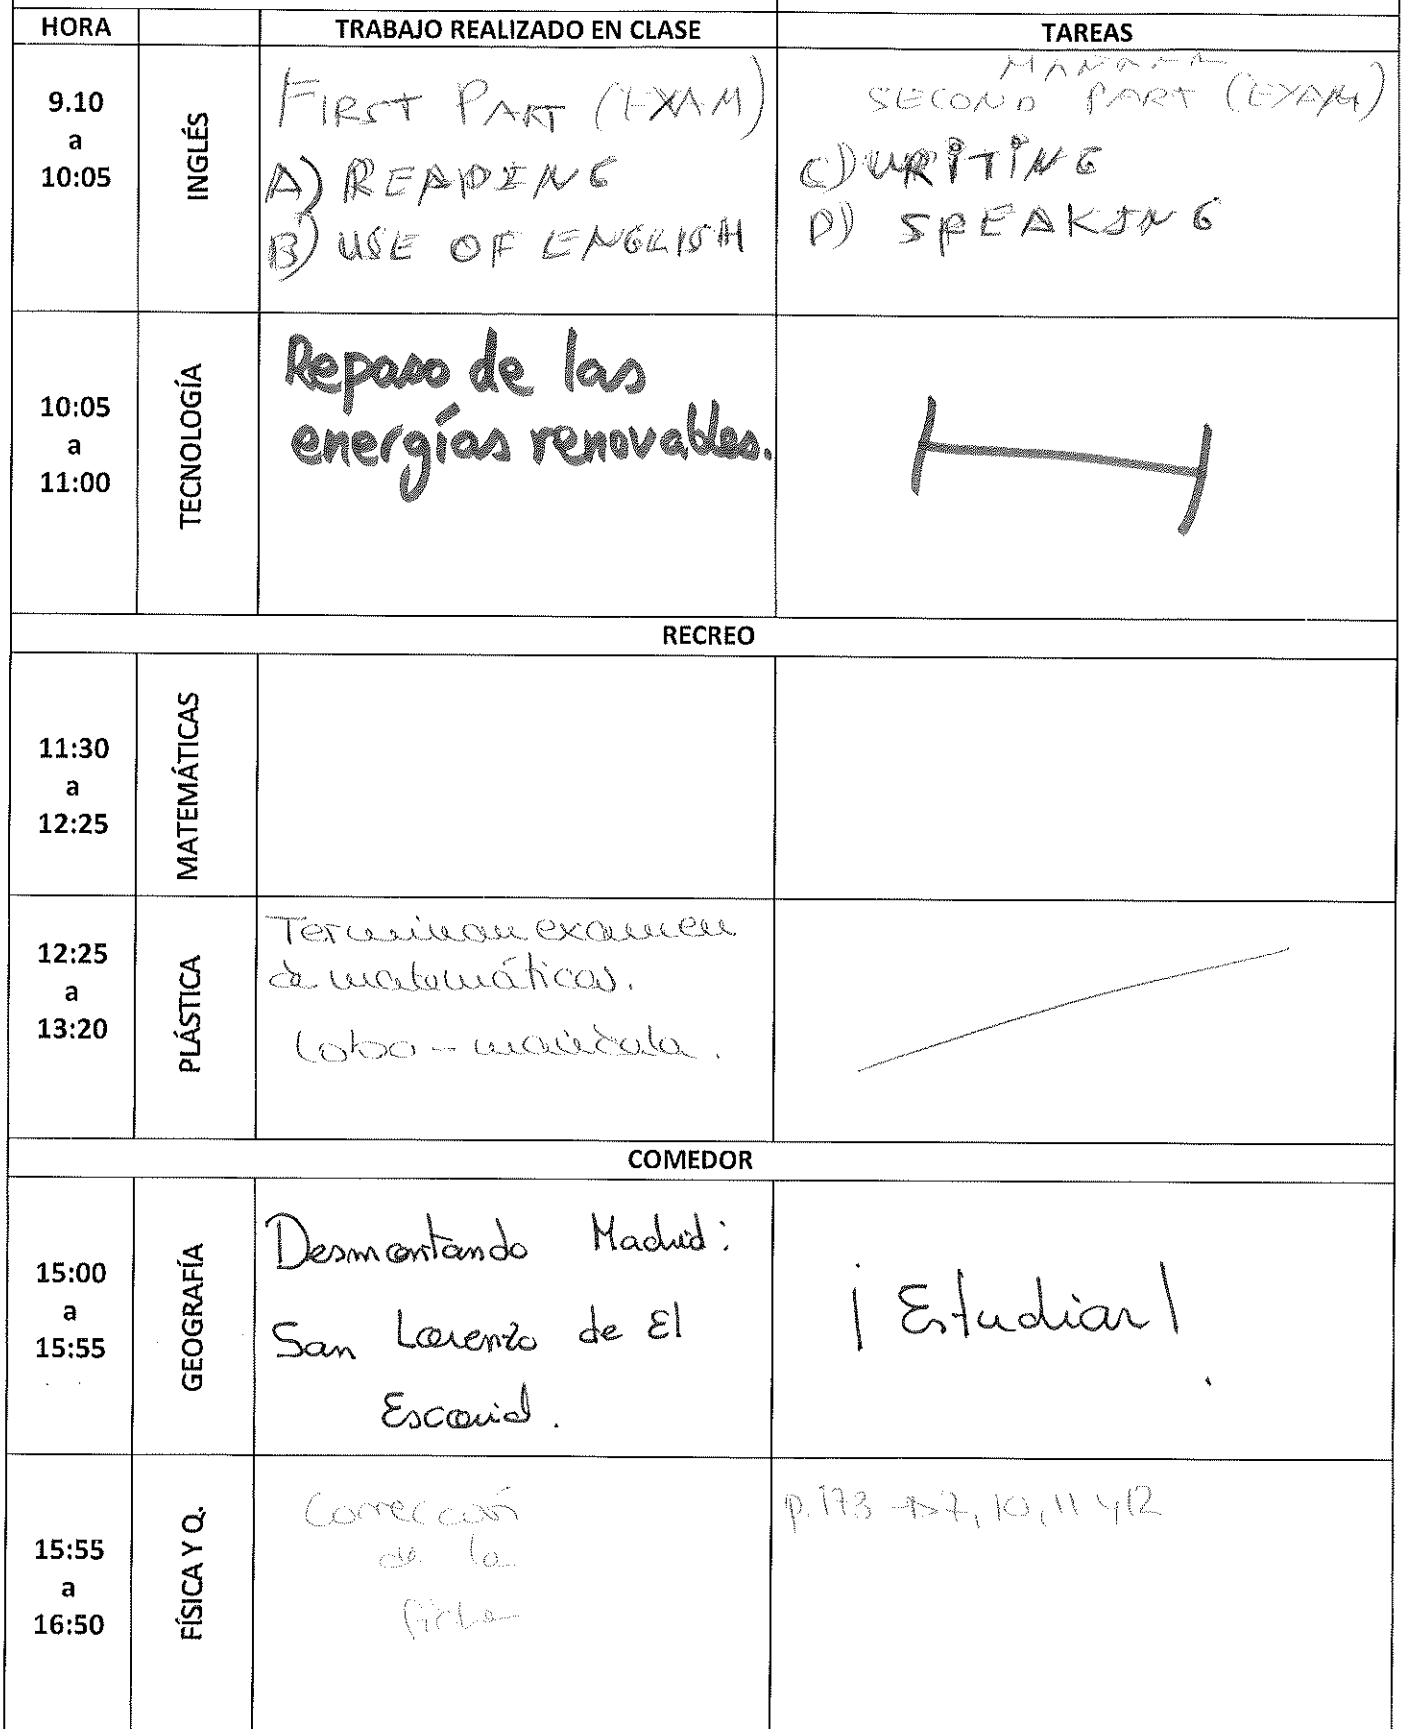 HORA TRABAJO REALIZADO EN CLASE TAREAS
9.10
a
10:05
INGLÉS
FIRST PART (EXAM)
A) READING
B) USE OF ENGLISH
MAÑANA
SECOND PART (EXAM)
C) WRITING
D) SPEAKING
10:05
a
11:00
TECNOLOGÍA
Repaso de las
energías renovables.
RECREO
11:30
a
12:25
MATEMÁTICAS
12:25
a
13:20
PLÁSTICA
Terminan examen
de matemáticas.
COMEDOR
15:00
a
15:55
GEOGRAFÍA
Desmontando Madrid:
San Lorenzo de El
Escorial.
¡Estudiar!
15:55
a
16:50
FÍSICA Y Q.
Corrección
de la
ficha
p. 173 → 7, 10, 11 y 12